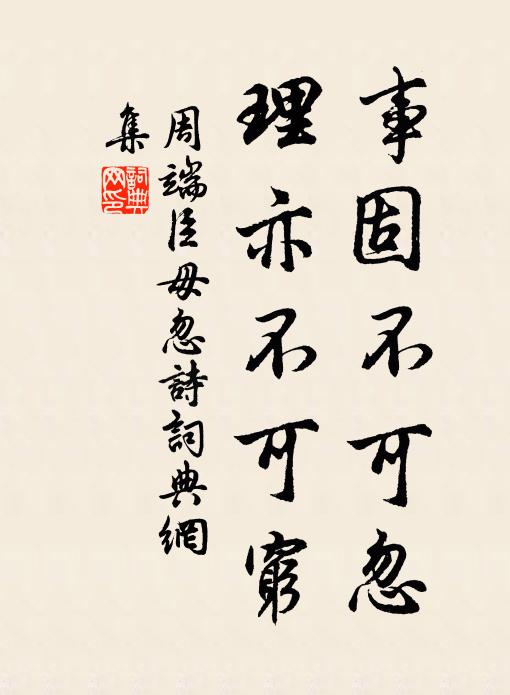 事固不可忽
理亦不可窮
周端臣毋忽詩詞典網
集
詞典網印